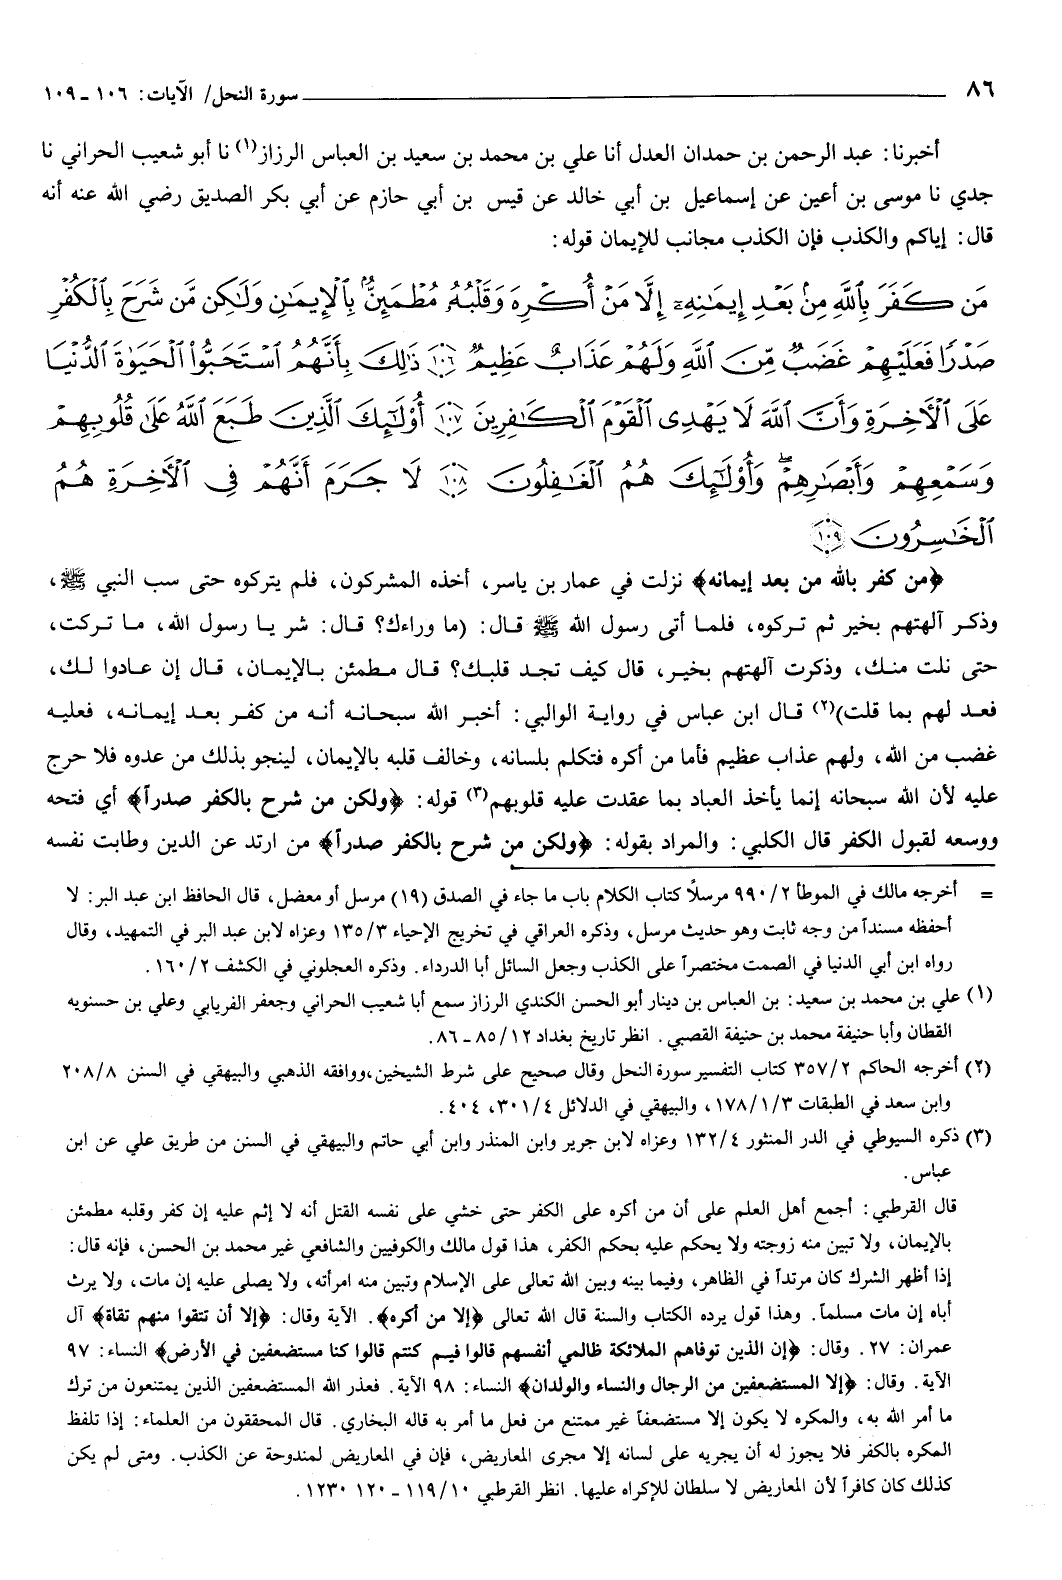 ٨٦ ــــــــــ سورة النحل/ الآيات: ١٠٦ ـ ١٠٩
أخبرنا: عبد الرحمن بن حمدان العدل أنا علي بن محمد بن سعيد بن العباس الرزاز(١) نا أبو شعيب الحراني نا
جدي نا موسى بن أعين عن إسماعيل بن أبي خالد عن قيس بن أبي حازم عن أبي بكر الصديق رضي الله عنه أنه
قال: إياكم والكذب فإن الكذب مجانب للإيمان قوله:
مَن كَفَرَ بِاللَّهِ مِنۢ بَعْدِ إِيمَٰنِهِۦٓ إِلَّا مَنْ أُكْرِهَ وَقَلْبُهُۥ مُطْمَئِنٌّۢ بِالْإِيمَٰنِ وَلَٰكِن مَّن شَرَحَ بِالْكُفْرِ
صَدْرًا فَعَلَيْهِمْ غَضَبٌ مِّنَ اللَّهِ وَلَهُمْ عَذَابٌ عَظِيمٌ ١٠٦ ذَٰلِكَ بِأَنَّهُمُ اسْتَحَبُّوا۟ الْحَيَوٰةَ الدُّنْيَا
عَلَى الْءَاخِرَةِ وَأَنَّ اللَّهَ لَا يَهْدِى الْقَوْمَ الْكَٰفِرِينَ ١٠٧ أُو۟لَٰٓئِكَ الَّذِينَ طَبَعَ اللَّهُ عَلَىٰ قُلُوبِهِمْ
وَسَمْعِهِمْ وَأَبْصَٰرِهِمْ ۖ وَأُو۟لَٰٓئِكَ هُمُ الْغَٰفِلُونَ ١٠٨ لَا جَرَمَ أَنَّهُمْ فِى الْءَاخِرَةِ هُمُ
الْخَٰسِرُونَ ١٠٩
﴿من كفر بالله من بعد إيمانه﴾ نزلت في عمار بن ياسر، أخذه المشركون، فلم يتركوه حتى سب النبي ﷺ،
وذكر آلهتهم بخير ثم تركوه، فلما أتى رسول الله ﷺ قال: (ما وراءك؟ قال: شر يا رسول الله، ما تركت،
حتى نلت منك، وذكرت آلهتهم بخير، قال كيف تجد قلبك؟ قال مطمئن بالإيمان، قال إن عادوا لك،
فعد لهم بما قلت)(٢) قال ابن عباس في رواية الوالبي: أخبر الله سبحانه أنه من كفر بعد إيمانه، فعليه
غضب من الله، ولهم عذاب عظيم فأما من أكره فتكلم بلسانه، وخالف قلبه بالإيمان، لينجو بذلك من عدوه فلا حرج
عليه لأن الله سبحانه إنما يأخذ العباد بما عقدت عليه قلوبهم(٣) قوله: ﴿ولكن من شرح بالكفر صدراً﴾ أي فتحه
ووسعه لقبول الكفر قال الكلبي: والمراد بقوله: ﴿ولكن من شرح بالكفر صدراً﴾ من ارتد عن الدين وطابت نفسه
= أخرجه مالك في الموطأ ٩٩٠/٢ مرسلاً كتاب الكلام باب ما جاء في الصدق (١٩) مرسل أو معضل، قال الحافظ ابن عبد البر: لا
أحفظه مسنداً من وجه ثابت وهو حديث مرسل، وذكره العراقي في تخريج الإحياء ١٣٥/٣ وعزاه لابن عبد البر في التمهيد، وقال
رواه ابن أبي الدنيا في الصمت مختصراً على الكذب وجعل السائل أبا الدرداء. وذكره العجلوني في الكشف ١٦٠/٢.
(١) علي بن محمد بن سعيد: بن العباس بن دينار أبو الحسن الكندي الرزاز سمع أبا شعيب الحراني وجعفر الفريابي وعلي بن حسنويه
القطان وأبا حنيفة محمد بن حنيفة القصبي. انظر تاريخ بغداد ٨٥/١٢ ـ ٨٦.
(٢) أخرجه الحاكم ٣٥٧/٢ كتاب التفسير سورة النحل وقال صحيح على شرط الشيخين،ووافقه الذهبي والبيهقي في السنن ٢٠٨/٨
وابن سعد في الطبقات ١٧٨/١/٣، والبيهقي في الدلائل ٣٠١/٤، ٤٠٤.
(٣) ذكره السيوطي في الدر المنثور ١٣٢/٤ وعزاه لابن جرير وابن المنذر وابن أبي حاتم والبيهقي في السنن من طريق علي عن ابن
عباس.
قال القرطبي: أجمع أهل العلم على أن من أكره على الكفر حتى خشي على نفسه القتل أنه لا إثم عليه إن كفر وقلبه مطمئن
بالإيمان، ولا تبين منه زوجته ولا يحكم عليه بحكم الكفر، هذا قول مالك والكوفيين والشافعي غير محمد بن الحسن، فإنه قال:
إذا أظهر الشرك كان مرتداً في الظاهر، وفيما بينه وبين الله تعالى على الإسلام وتبين منه امرأته، ولا يصلى عليه إن مات، ولا يرث
أباه إن مات مسلماً. وهذا قول يرده الكتاب والسنة قال الله تعالى ﴿إلا من أكره﴾. الآية وقال: ﴿إلا أن تتقوا منهم تقاة﴾ آل
عمران: ٢٧. وقال: ﴿إن الذين توفاهم الملائكة ظالمي أنفسهم قالوا فيم كنتم قالوا كنا مستضعفين في الأرض﴾ النساء: ٩٧
الآية. وقال: ﴿إلا المستضعفين من الرجال والنساء والولدان﴾ النساء: ٩٨ الآية. فعذر الله المستضعفين الذين يمتنعون من ترك
ما أمر الله به، والمكره لا يكون إلا مستضعفاً غير ممتنع من فعل ما أمر به قاله البخاري. قال المحققون من العلماء: إذا تلفظ
المكره بالكفر فلا يجوز له أن يجريه على لسانه إلا مجرى المعاريض، فإن في المعاريض لمندوحة عن الكذب. ومتى لم يكن
كذلك كان كافراً لأن المعاريض لا سلطان للإكراه عليها. انظر القرطبي ١١٩/١٠ ـ ١٢٠ ١٢٣٠.